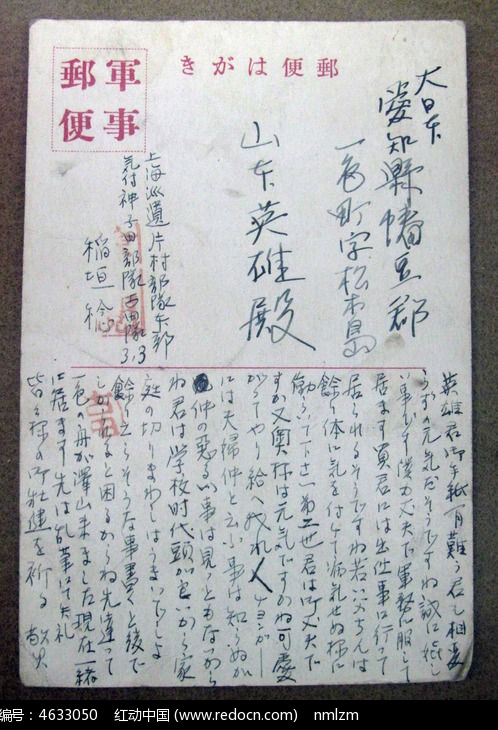 軍事
郵便
郵便はがき
大日本
愛知縣幡豆郡
一色町字松木島
山本英雄殿
上海派遣片村部隊本部
気付神子田部隊吉田隊3,3
稲垣稔
英雄君御手紙有難う君も相変
らずの元気ださうですね誠に嬉し
い事です僕も丈夫で軍務に服して
居ます
君には出仕事に行って
居られるさうですね若い
んは
餘り体に気を付けて病気せぬ様に
働いて下さい
君は丈夫で
すか又奥様は元気ですかね可愛
がってやり給へ
には夫婦仲と云ふ事は知らぬが
仲の悪るい事は見ともないから
ね君は学校時代頭が良いから家
庭の切りまわしはうまいでしょ
餘り立ち
うな事書くと後で
しかられると困るからね先達って
一色の舟が澤山来ました現在一緒
に居ます先は乱筆にて失礼
皆々様の御壮健を祈る
敬具
编号：4633050 红动中国 (www.redocn.com) nmlzm